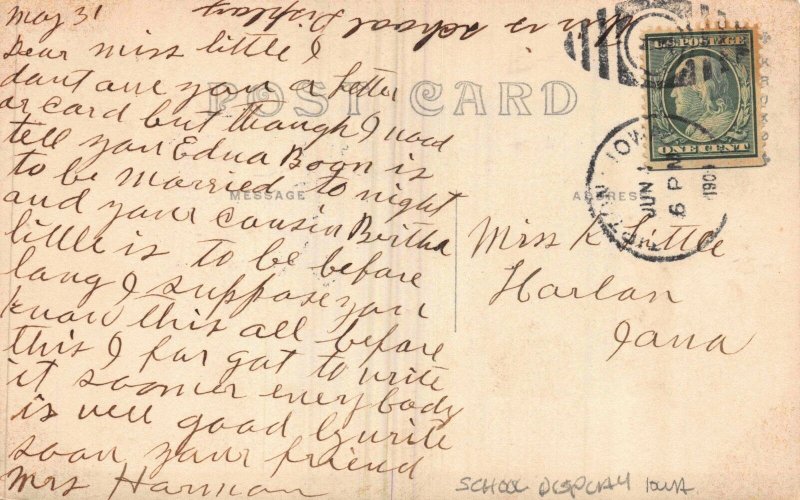 May 31
Dear miss little I
dant owe you a letter
or card but though I wod
tell you Edna Bogn is
to be married to night
and your cousin Bertha
little is to be before
lang I suppose you
know this all before
this I for got to write
it sooner everybody
is well good by write
soon your friend
Mrs Harman
is school Display
POST CARD
MESSAGE
ADDRESS
U.S. POSTAGE
ONE CENT
IOWA
JUN 1
6 PM
Miss K Little
Harlan
Iowa
SCHOOL DISPLAY IOWA